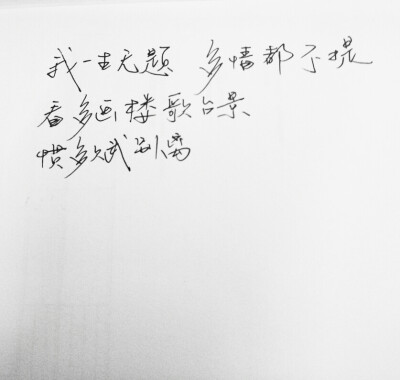 我一生无题 多情都不提
看多画楼歌台景
惯多久武别离